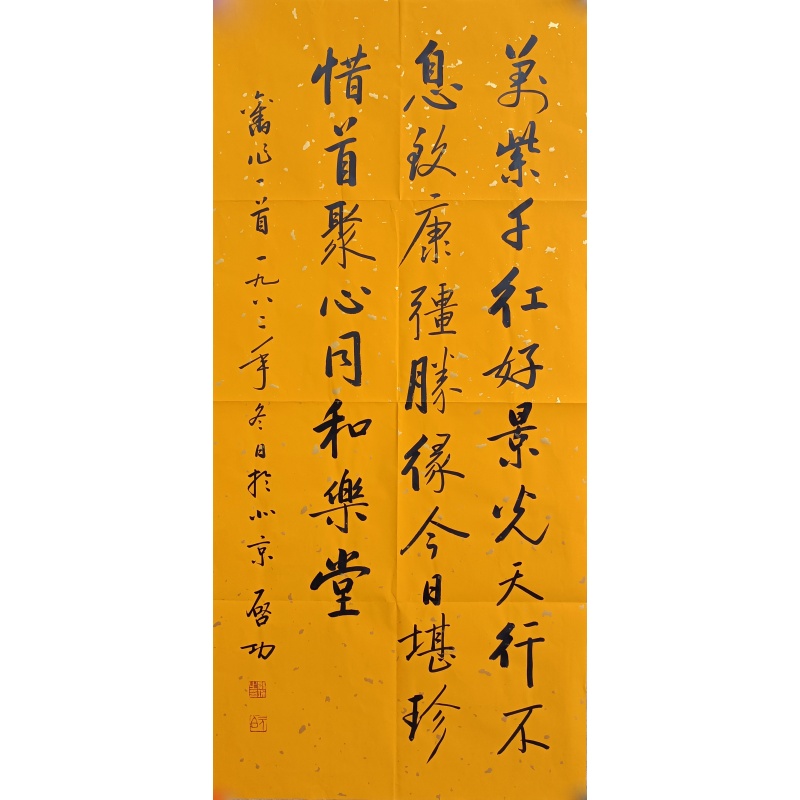 萬紫千红好景光天行不
息致康彊勝緣今日堪珍
惜首聚心同和樂堂
舊作一首一九八二年冬日於北京啓功